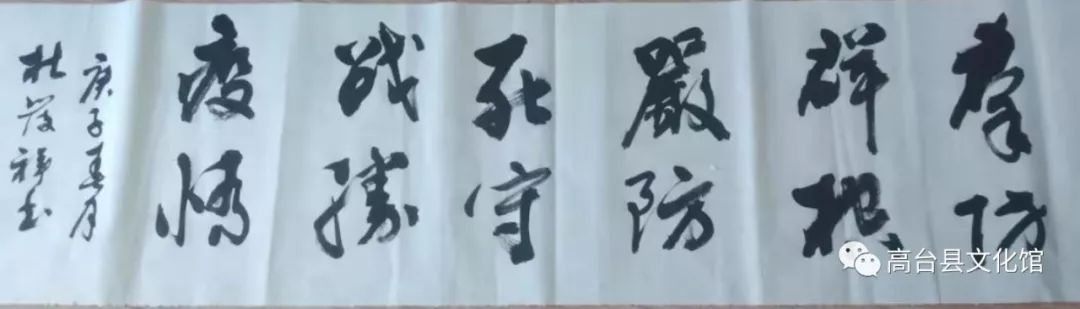 羣防
群控
嚴防
死守
战勝
疫情
庚子春月
杜發祥书
高台县文化馆